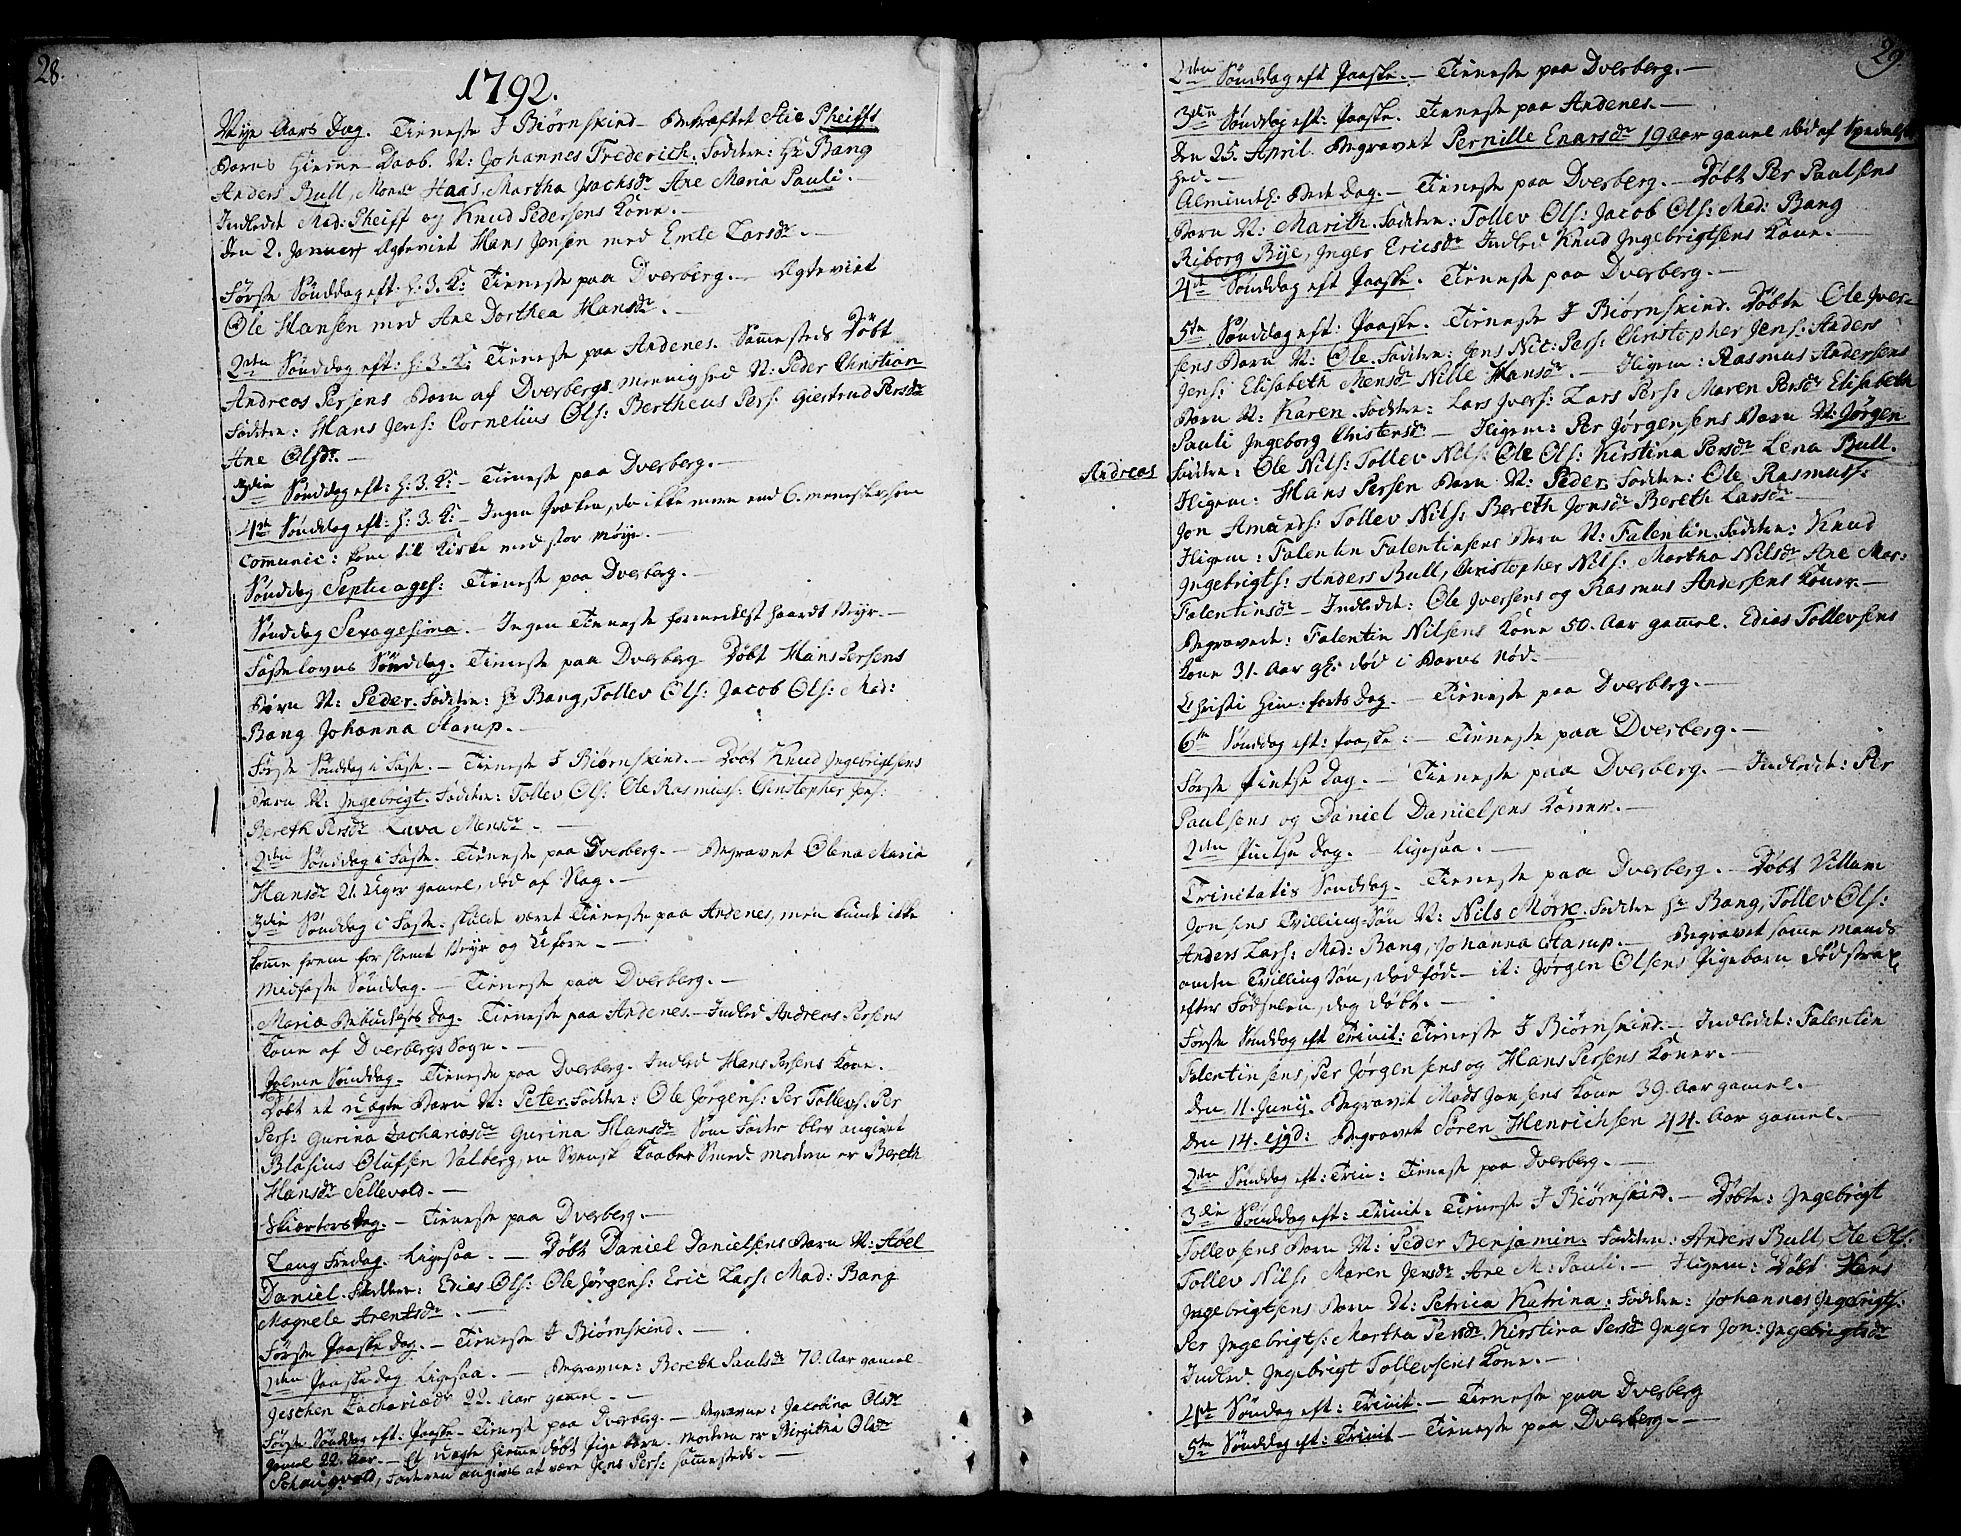 28.
1792.
Nye Aars Dag. Tieneste i Biørnskind – Bekræftet Stie Pheiffs
Barns Hiemme-Daab. N: Johannes Frederich. Faddere: Hr Bang
Anders Bull, Monsr Haas, Martha Jsachsdr Ane Maria Pauli. –
Indledt Mad: Pheiff og Knud Pedersens Kone. –
den 2. Januarj Egteviet Hans Jensen med Emle Larsdr. –
Første Sønddag eft. H. 3. K: Tieneste paa Dverberg. – Egteviet
Ole Hansen med Ane Dorthea Hansdr. –
2den Sønddag eft: H. 3. K: Tieneste paa Andenes. Sammesteds Døbt
Andreas Persens Barn af Dverbergs Meenighed N: Peder Christian
Faddere: Hans Jens: Cornelius Ols: Bertheus Pers: Giertrud Persdr
Ane Olsdr. –
3die Sønddag eft: H. 3. K: – Tieneste paa Dverberg. –
4de Sønddag eft: H. 3. K: – Ingen Præken, da ikke mere end 6. mennesker som
Communic: kom till Kirke med stor møye. –
Sønddag Septuages: Tieneste paa Dverberg. –
Sønddag Sexagesima. – Ingen Tieneste formedelst haardt Veyr. –
Fastelavns Sønddag. Tieneste paa Dverberg Døbt Hans Persens
Barn N: Peder. Faddere: Hr Bang, Tollev Ols: Jacob Ols: Mad:
Bang Johanna Aarup. –
Første Sønddag i Faste. – Tieneste i Biørnskind. – Døbt Knud Jngebrigtsens
Barn N: Jngebrigt. Faddere: Tollev Ols: Ole Rasmuss: Christopher Jens:
Bereth Persdr Lava Mensdr. –
2den Sønddag i Faste. Tieneste paa Dverberg. – Begravet Olena Maria
Hansdr 21. Uger gamel, død af Slag. –
3die Sønddag i Faste: skulde været Tieneste paa Andenes, men kunde ikke
komme frem for slemt Veyr og Uføre. –
Midfaste Sønddag. – Tieneste paa Dverberg. –
Mariæ Bebudelses Dag. Tieneste paa Andenes. – Indled Andreas Persens
Kone af Dverbergs Sogn. –
Palme Sønddag. – Tieneste paa Dverberg. Indled Hans Persens Kone. –
Døbt et uægte Barn N: Peter. Faddere: Ole Jørgens: Per Tollevs: Per
Pers: Gurina Zachariasdr Gurina Hansdr Som Fader blev angivet
Blasius Olufsen Valberg, en Svensk Kaaber Smed. Modern er Bereth
Hansdr Sellevold. –
Skiærtorsdag. – Tieneste paa Dverberg. –
Lang Fredag. Ligesaa. – Døbt Daniel Danielsens Barn N: Abel
Daniel. Faddere: Edias Ols: Ole Jørgens: Eric Lars: Mad: Bang
Magnele Arentsdr. –
Første Paaske Dag. – Tieneste i Biørnskind. –
2den Paaske Dag Ligesaa. – Begravne: Bereth Paulsdr 70. Aar gamel
Jeschen Zachariædr 22. Aar gamel. –
Første Sønddag eft: Paaske – Tieneste paa Dverberg. – Begravne: Jacobina Olsdr
gamel 22. Aar. – Et uægte hiemme døbt Pige barn. Modern er Birgitha Olsdr
Schaugvold, Faderen angives at være Jens Pers: sammesteds. –
29
2den Sønddag eft Paaske. – Tieneste paa Dverberg. –
3die Sønddag eft: Paaske. Tieneste paa Andenes. –
den 25. April. Begravet Pernille Enarsdr 19 Aar gamel død af Spedalsk
hed. –
Almindel: Bede Dag. – Tieneste paa Dverberg. – Døbt Per Paulsens
Barn N: Marith. Faddere: Tollev Ols: Jacob Ols: Mad: Bang
Riborg Bye, Jnger Ericsdr Indled Knud Jngebrigtsens Kone. –
4de Sønddag eft Paaske. Tieneste paa Dverberg. –
5te Sønddag eft: Paaske. Tieneste i Biørnskind. Døbte Ole Jver-
sens Barn N: Ole. Faddere: Jens Nic: Pers: Christopher Jens: Anders
Jens: Elisabeth Mensdr Nille Hansdr. – Jligem: Rasmus Andersens
Barn N: Karen. Faddere: Lars Jvers: Lars Pers: Maren Persdr Elisabeth
Pauli Jngeborg Christensdr – Jligem: Per Jørgensens Barn N: Jørgen
Andreas Faddere: Ole Nils: Tollev Nils: Ole Ols: Kirstina Persdr Lena Bull.
Jligem: Hans Persen Barn N: Peder. Faddere: Ole Rasmuss:
Jon Amunds: Tollev Nils: Bereth Jonsdr Bereth Larsdr –
Jligem: Falentin Falentinsens Barn N: Falentin. Faddere: Knud
Jngebrigts: Anders Bull, Christopher Nils: Martha Nilsdr Ane Mar:
Falentinsdr – Indledt: Ole Jversens og Rasmus Andersens Koner. –
Begravet: Falentin Nilsens Kone 50. Aar gammel. Edias Tollevsens
Kone 31. Aar gl: død i Barns Nød. –
Christi Himmelfarts Dag. – Tieneste paa Dverberg. –
6te Sønddag eft: Paaske: – Tieneste paa Dverberg. –
Første Pintse Dag. – Tieneste paa Dverberg. – Indledt: Per
Paulsens og Daniel Danielsens Koner. –
2den Pintse Dag. – Ligesaa. –
Trinitatis Sønddag. Tieneste paa Dverberg. – Døbt Villum
Jonsens Tvilling-Søn N: Nils Mörk. Faddere Hr Bang, Tollev Ols:
Anders Lars: Mad: Bang, Johanna Aarup. – Begravet samme Mands
anden Tvilling Søn, dødfød. – it: Jørgen Olsens Pigebarn død strax
efter Fødselen, dog døbt. –
Første Sønddag eft Trinit: Tieneste i Biørnskind. – Indledt: Falentin
Falentinsens, Per Jørgensens og Hans Persens Koner. –
den 11. Junij. Begravet Mads Jonsens Kone 39. Aar gamel. –
den 14. ejsd: Begravet Sören Henrichsen 44. Aar gamel. –
2den Sønddag eft: Trin: Tieneste paa Dverberg. –
3die Sønddag eft: Trinit: Tieneste i Biørnskind. – Døbte: Jngebrigt
Tollevsens Barn N: Peder Benjamin. Faddere: Anders Bull, Ole Ols:
Tollev Nils: Maren Jensdr Ane M: Pauli. – Jligem: Døbt Hans
Jngebrigtsens Barn N: Petrica Katrina. Faddere: Johannes Jngebrigts:
Per Jngebrigts: Martha Persdr Kirstina Persdr Jnger Jon: Jngebrigtsdr
Indled Jngebrigt Tollevsens Kone. –
4de Søndag eft: Trinit. – Tieneste paa Dverberg
5te Sønddag eft: Trinit – Tieneste paa Dverberg. –